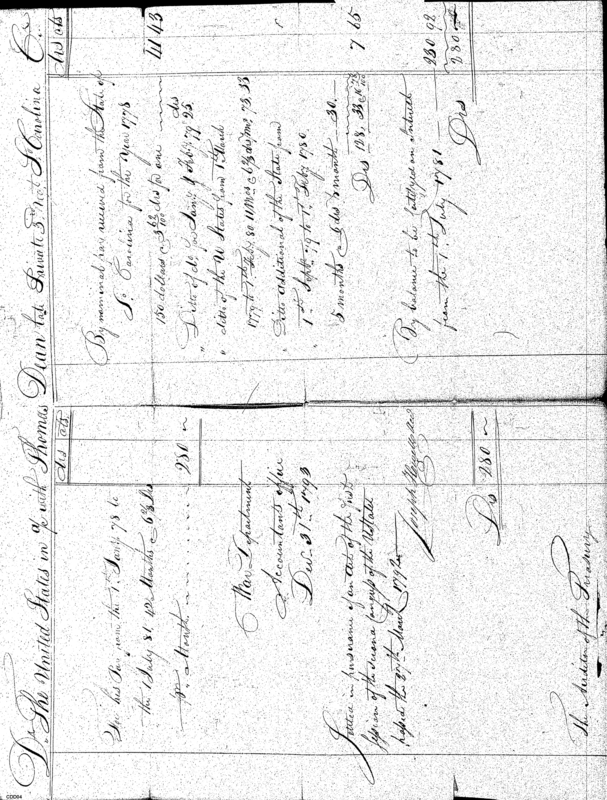 Dr. The United States in a/c with Thomas Dean late Private 3d. regt. S. Carolina Cr.
drs cts
For his Pay from the 1st. Jany. 78 to
the 1 July 81, 42 Months @ 6 2/3 drs
pr. Month 280
War Department
Accountants office
Decr. 31st. 1793
Settled in pursuance of an Act of the first
session of the second Congress of the U States
passed the 27th March 1792
Joseph Howell
Drs 280
The Auditor of the Treasury
drs cts
By nominal pay received from the State of
So. Carolina for the Year 1778
180 dollars @ dls for one 41 43
" Ditto of do. for Jany. & Feby. 79 25
" ditto of the U States from 1st. March
1779 to 1st. Feby. 80 11 Mos @ 6 2/3 drs pr mo. 73 33
Ditto additional of the State from
" 1st. Septr. 79 to 1st. Feby. 1780
5 months @ 6 drs month 30
Drs 128, 33 7 65
By balance to be certified on interest
from the 1st. July 1781 230 92
Drs 280
CDD64